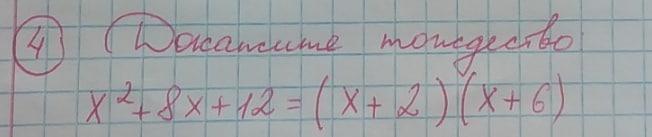 4 Докажите тождество
x²+8x+12=(x+2)(x+6)